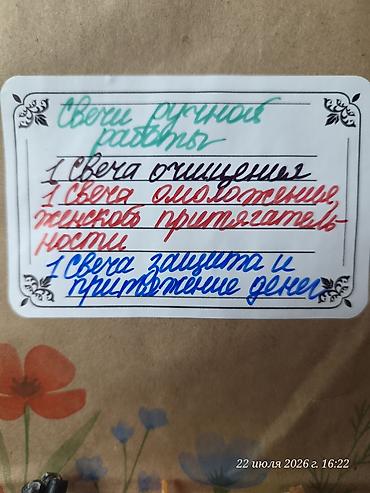 Свечи ручной
работы
1 Свеча очищения
1 Свеча омоложение,
женской притягатель-
ности
1 Свеча защита и
притяжение денег
22 июля 2026 г. 16:22